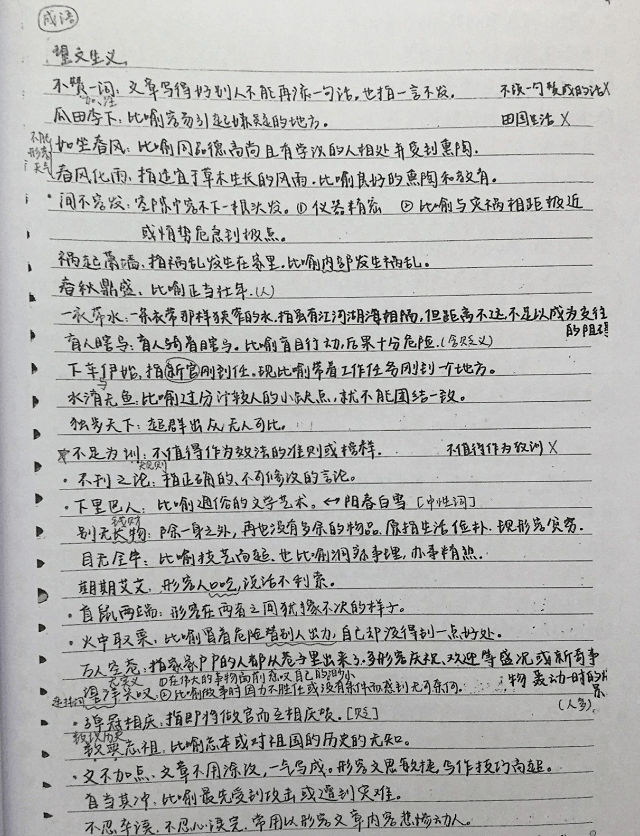 成语
望文生义
不赞一词：文章写得好别人不能再添一句话，也指一言不发。 不说一句赞成的话X
加注
瓜田李下：比喻容易引起嫌疑的地方。 田园生活 X
不能形容天气
如坐春风：比喻同品德高尚且有学识的人相处并受到熏陶.
春风化雨：指适宜于草木生长的风雨.比喻良好的熏陶和教育。
·间不容发：空隙中容不下一根头发。①仪器精密 ②比喻与灾祸相距极近
或情势危急到极点。
祸起萧墙：指祸乱发生在家里.比喻内部发生祸乱。
春秋鼎盛，比喻正当壮年.(人)
一衣带水：一条衣带那样狭窄的水.指虽有江河湖海相隔，但距离不远，不足以成为交往
的阻碍
盲人瞎马：盲人骑着瞎马。比喻盲目行动，后果十分危险.(含贬义)
下车伊始，指新官刚到任.现比喻带着工作任务刚到一个地方。
水清无鱼：比喻过分计较人的小缺点，就不能团结一致。
独步天下：超群出众无人可比。
不足为训：不值得作为效法的准则或榜样. 不值得作为教训 X
·不刊之论：指正确的、不可修改的言论。
·下里巴人：比喻通俗的文学艺术。↔阳春白雪 [中性词]
钱财
别无长物：除一身之外，再也没有多余的物品.原指生活俭朴.现形容贫穷.
目无全牛：比喻技艺高超.也比喻洞熟事理，办事精熟.
期期艾艾.形容人口吃，说话不利索。
·首鼠两端：形容在两者之间犹豫不决的样子。
·火中取栗，比喻冒着危险替别人出力，自己却没得到一点好处。
万人空巷：指家家户户的人都从巷子里出来了.多形容庆祝、欢迎等盛况或新奇事
物轰动一时的情景
(人多)
①在伟大的事物面前感叹自己的渺小
望洋兴叹：②比喻做事时因力不胜任或没有条件而感到无可奈何。
·弹冠相庆：指即将做官而互相庆贺。[贬]
数典忘祖，比喻忘本或对祖国的历史的无知。
·文不加点，文章不用涂改，一气写成。形容文思敏捷，写作技巧高超。
首当其冲，比喻最先受到攻击或遭到灾难。
不忍卒读，不忍心读完，常用以形容文章内容悲惨动人。